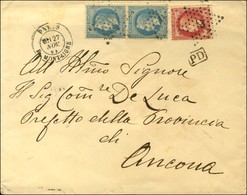 PARIS
27
NOV.
PD
All' Illmo Signore
Il Sig. Comm.re De Luca
Prefetto della Provincia
di
Ancona